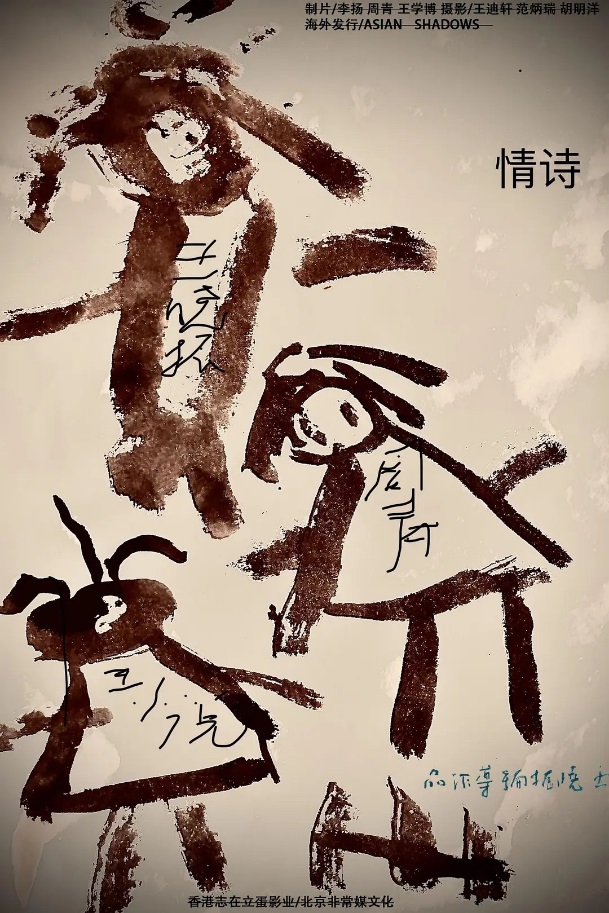 制片/李扬 周青 王学博 摄影/王迪轩 范炳瑞 胡明洋
海外发行/ASIAN SHADOWS
情诗
王晓振
周青
品作導编振晓王
香港志在立蛋影业/北京非常媒文化